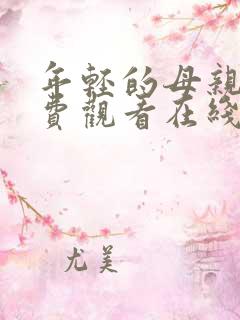 年輕的母親
費觀看在綫
尤美